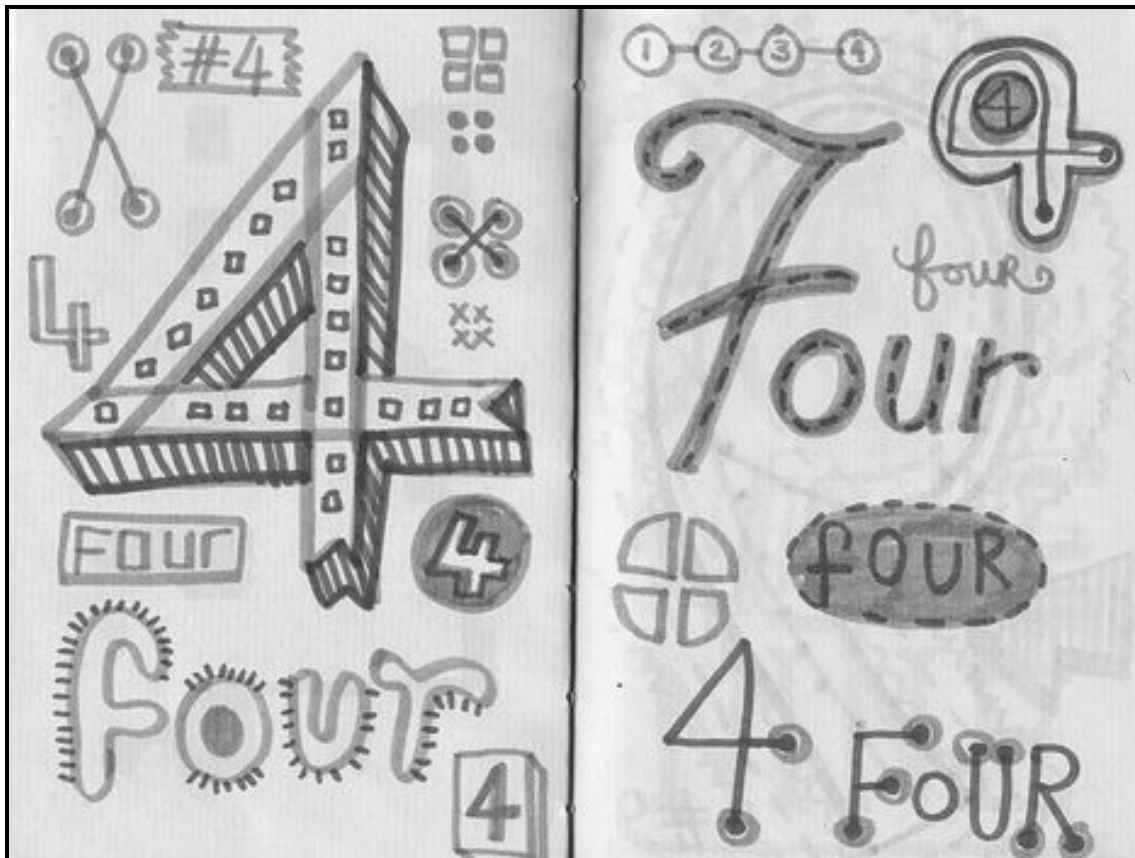 #4
4
4
FOUR
4
four
4
1 2 3 4
4
4
four
Four
fOUR
4 FoUR